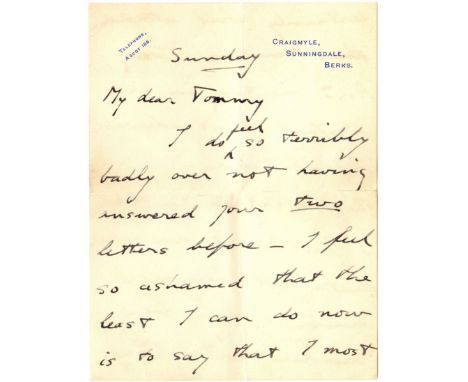 TELEPHONE,
ASCOT 188.
CRAIGMYLE,
SUNNINGDALE,
BERKS.
Sunday
My dear Tommy
I do feel so terribly
badly over not having
answered your two
letters before – I feel
so ashamed that the
least I can do now
is to say that I most